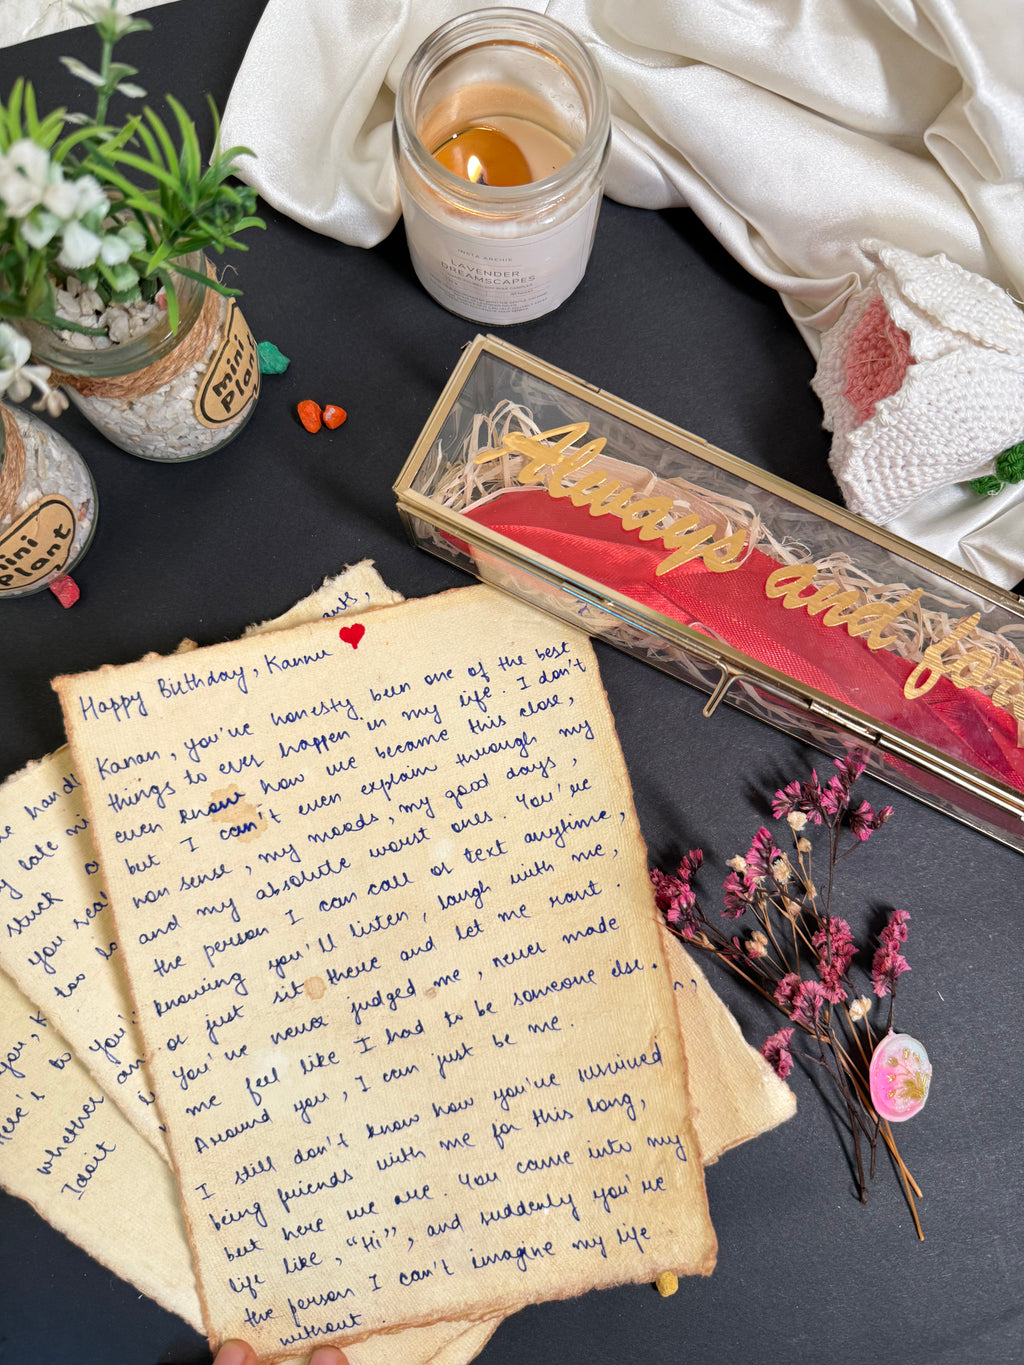 INSTA ARCHIE
LAVENDER
DREAMSCAPES
mini
Plant
mini
Plant
Always and for
Happy Birthday, Kannu
Kanan, you've honesty been one of the best
things to ever happen in my life. I don't
even know how we became this close,
but I can't even explain through my
non sense, my moods, my good days,
and my absolute worst ones. You're
the person I can call or text anytime,
knowing you'll listen, laugh with me,
or just sit there and let me rant.
You've never judged me, never made
me feel like I had to be someone else.
Around you, I can just be me.
I still don't know how you've survived
being friends with me for this long,
but here we are. You came into my
life like, "Hi", and suddenly you're
the person I can't imagine my life
without.
stuck
you
too
you,
Here's to you
whether
Idoit